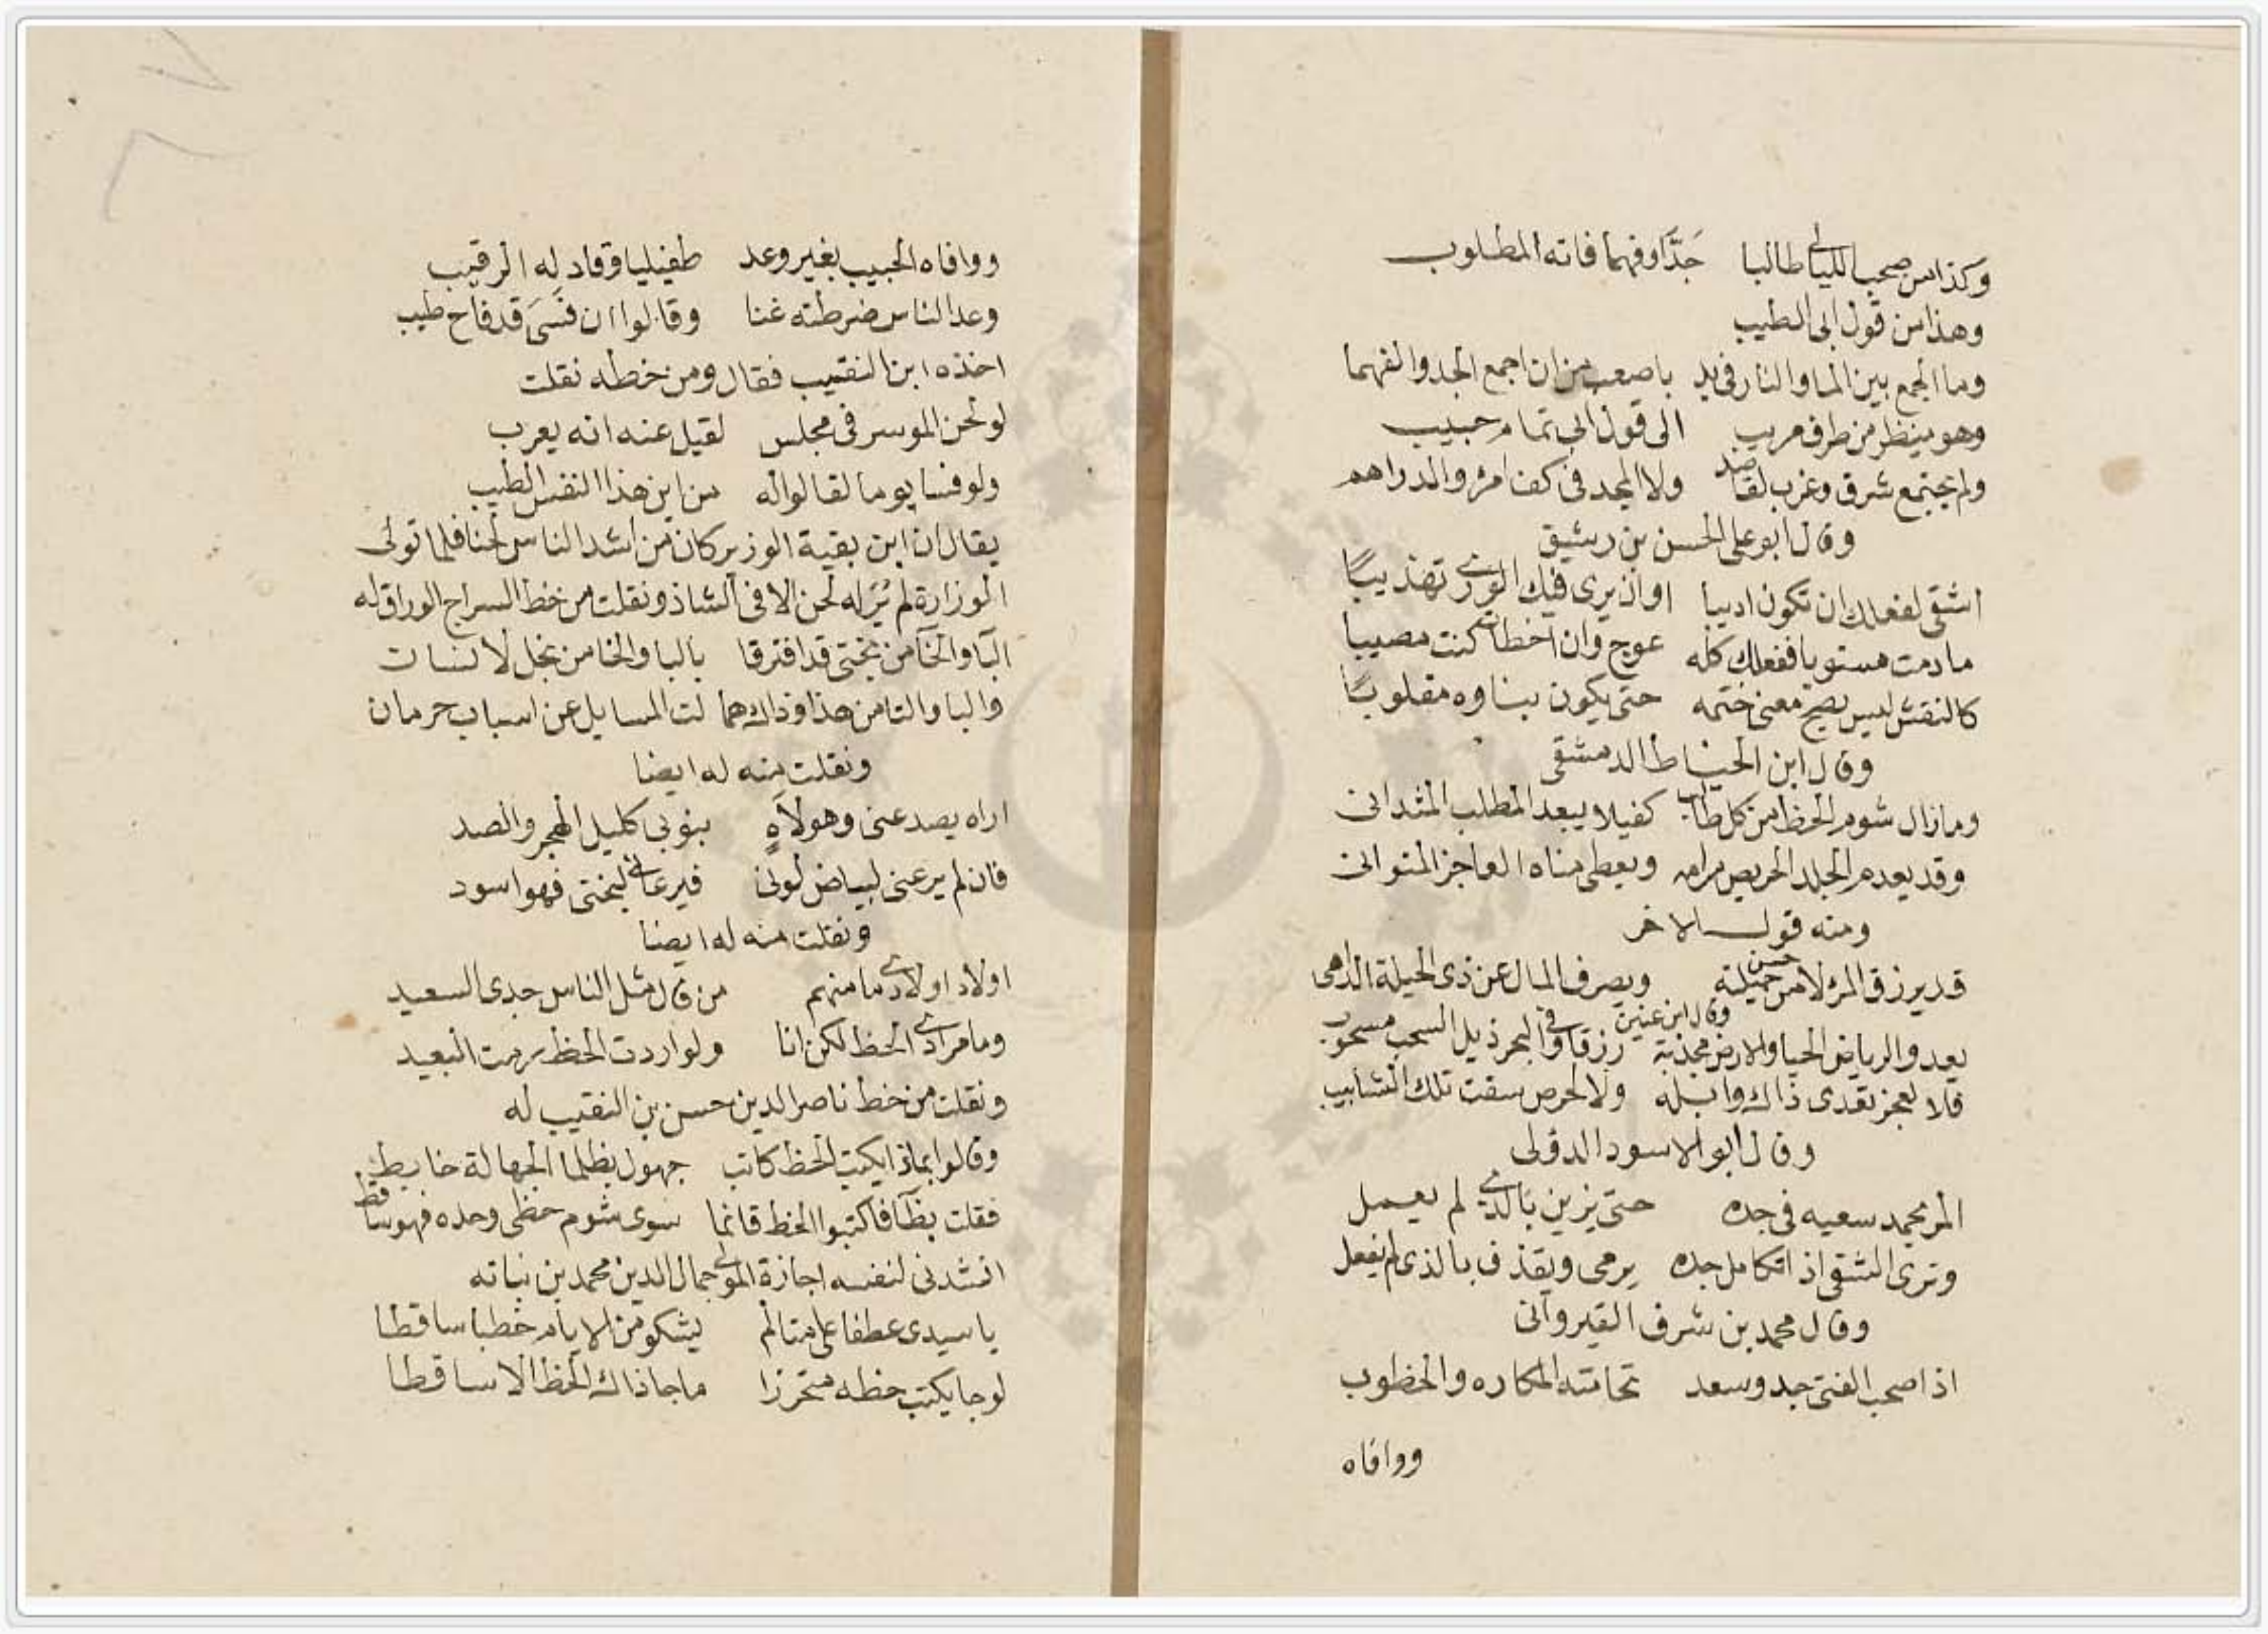 وكذا من صحب الليالي طالبا جَدًّا وفهما فاته المطلوب
وهذا من قول ابى الطيب
وما الجمع بين الما والنار فى يد باصعب من ان اجمع الجد والفهما
وهو ينظر من طرف مريب الى قول ابى تمام حبيب
ولم يجتمع شرق وغرب لقاصد ولا المجد فى كف امرؤ والدراهم
وقال ابو على الحسن بن رشيق
اشقى لفعلك ان تكون اديبا او ان يرى فيك الورى تهذيبًا
ما دمت مستويا ففعلك كله عوج وان اخطات كنت مصيبا
كالنقش ليس يصح معنى ختمه حتى يكون بناوه مقلوبًا
وقال ابن الخياط الدمشقى
وما زال شوم الحظ من كل طالب كفيلا يبعد المطلب المتدانى
وقد يعدم الجلد الحريص مرامه ويعطى مناه العاجز المتوانى
ومنه قول الاخر
قد يرزق المرء لا من حسن حيلته ويصرف المال عن ذى الحيلة الداهى
وقال ابن عنين
يعدو الرياض الحيا والارض مجدبة رزقا وفى البحر ذيل السحب مسحوب
فلا لعجز تعدى ذاك وابله ولا لحرص سقت تلك الشابيب
وقال ابو الاسود الدولى
المر يحمد سعيه فى جده حتى يزين بالذى لم يعمل
وترى الشقى اذا تكامل جده يرمى ويقذف بالذى لم يفعل
وقال محمد بن شرف القيروانى
اذا صحب الفتى جد وسعد تحامته المكاره والخطوب
ووافاه
ووافاه الحبيب بغير وعد طفيليا وقاد له الرقيب
وعد الناس ضرطته غنا وقالوا ان فسَى قد فاح طيب
اخذه ابن النقيب فقال ومن خطه نقلت
لو لحن الموسر فى مجلس لقيل عنه انه يعرب
ولو فسا يوما لقالوا له من اين هذا النفس الطيب
يقال ان ابن بقية الوزير كان من اشد الناس لحنا فلما تولى
الوزارة لم يُرَ له لحن الا فى الشاذ ونقلت من خط السراج الوراق له
البا والخا من بختى قد افترقا بالبا والخا من بخل لانسان
والبا والتا من هذا وذاك هما لت المسايل عن اسباب حرمان
ونقلت منه له ايضا
اراه يصد عنى وهو لاهٍ بنوبى كليل الهجر والصد
فان لم يرعنى لبياض لونى فيرعانى لبختى فهو اسود
ونقلت منه له ايضا
اولاد اولادى ما منهم من قال مثل الناس جدى السعيد
وما مرادى الحظ لكن انا ولو اردت الحظ رمت البعيد
ونقلت من خط ناصر الدين حسن بن النقيب له
وقالوا بماذا يكتب الحظ كاتب جهول بظلما الجهالة خابط
فقلت بظا فاكتبوا الحظ قائما سوى شوم حظى وحده فهو ساقط
انشدنى لنفسه اجازة المولى جمال الدين محمد بن نباته
يا سيدى عطفا على متالم يشكو من الايام خطبا ساقطا
لو جا يكتب حظه متحرزا ما جا ذاك الحظ الا ساقطا